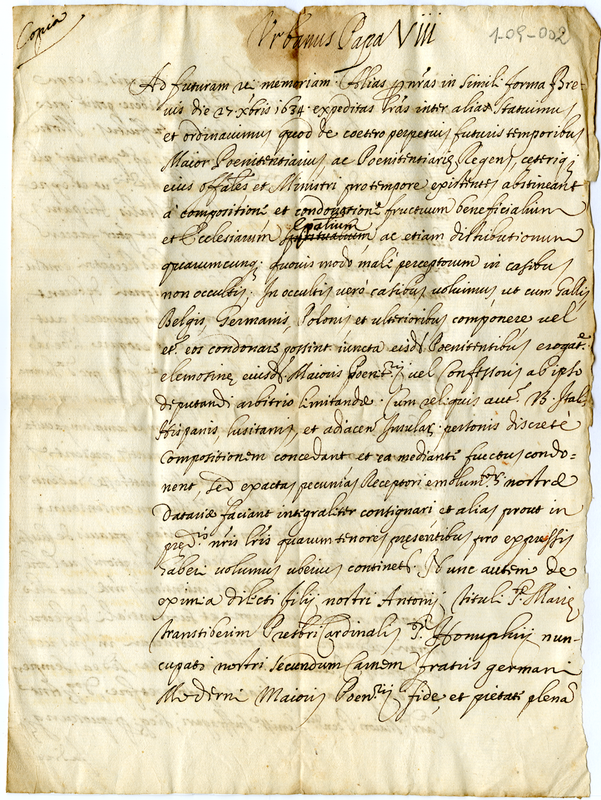 Copia
Urbanus Papa VIII
1-09-002
Ad futuram rei memoriam. Alias p nras in simili forma Bre-
uis die 27 Xbris 1634 expeditas lras inter alias Statuimus
et ordinauimus quod de coetero perpetuis futuris temporibus
Maior Poenitentiarius ac Poenitentiariæ Regens, ceteriq;
eius offales et Ministri pro tempore existentes abstineant
à compositione et condonatione fructuum beneficialium
et Ecclesiarum spalium ac etiam distributionum
quarumcunq; quouis modo malè perceptorum in casibus
non occultis; In occultis verò casibus volumus ut cum Gallis
Belgis, Germanis, Polonis et ulterioribus componere vel
et eos condonare possint iuxta eisdem Poenitentibus erogat
elemosinæ eiusdem Maioris Poenrij vel Confessoris ab ipso
deputandi arbitrio limitandæ. Cum reliquis aut V. Ital
Hispanis, lusitanis, et adiacen Insular personis discretè
Compositionem concedant et ea mediante fructus condo-
nent, sed exactas pecunias Receptori emolumtor nostræ
Datariæ faciant integraliter consignari et alias prout in
predtis nris lris quarum tenores presentibus pro expressis
haberi volumus uberius continetr. Nunc autem de
eximia dilecti filij nostri Antonij tituli S. Mariæ
transtiberim Presbri Cardinalis S. Honuphrij nun-
cupati nostri secundum carnem fratris germani
Moderni Maioris Poenrij fide, et pietate plenā